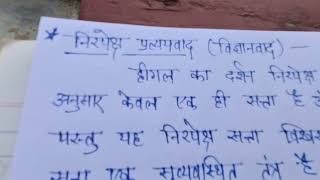 * निरपेक्ष प्रत्ययवाद (विज्ञानवाद) —
हीगल का दर्शन निरपेक्ष
अनुसार केवल एक ही सत्ता है
परन्तु यह निरपेक्ष सत्ता
सत्ता एक सुव्यवस्थित तंत्र है